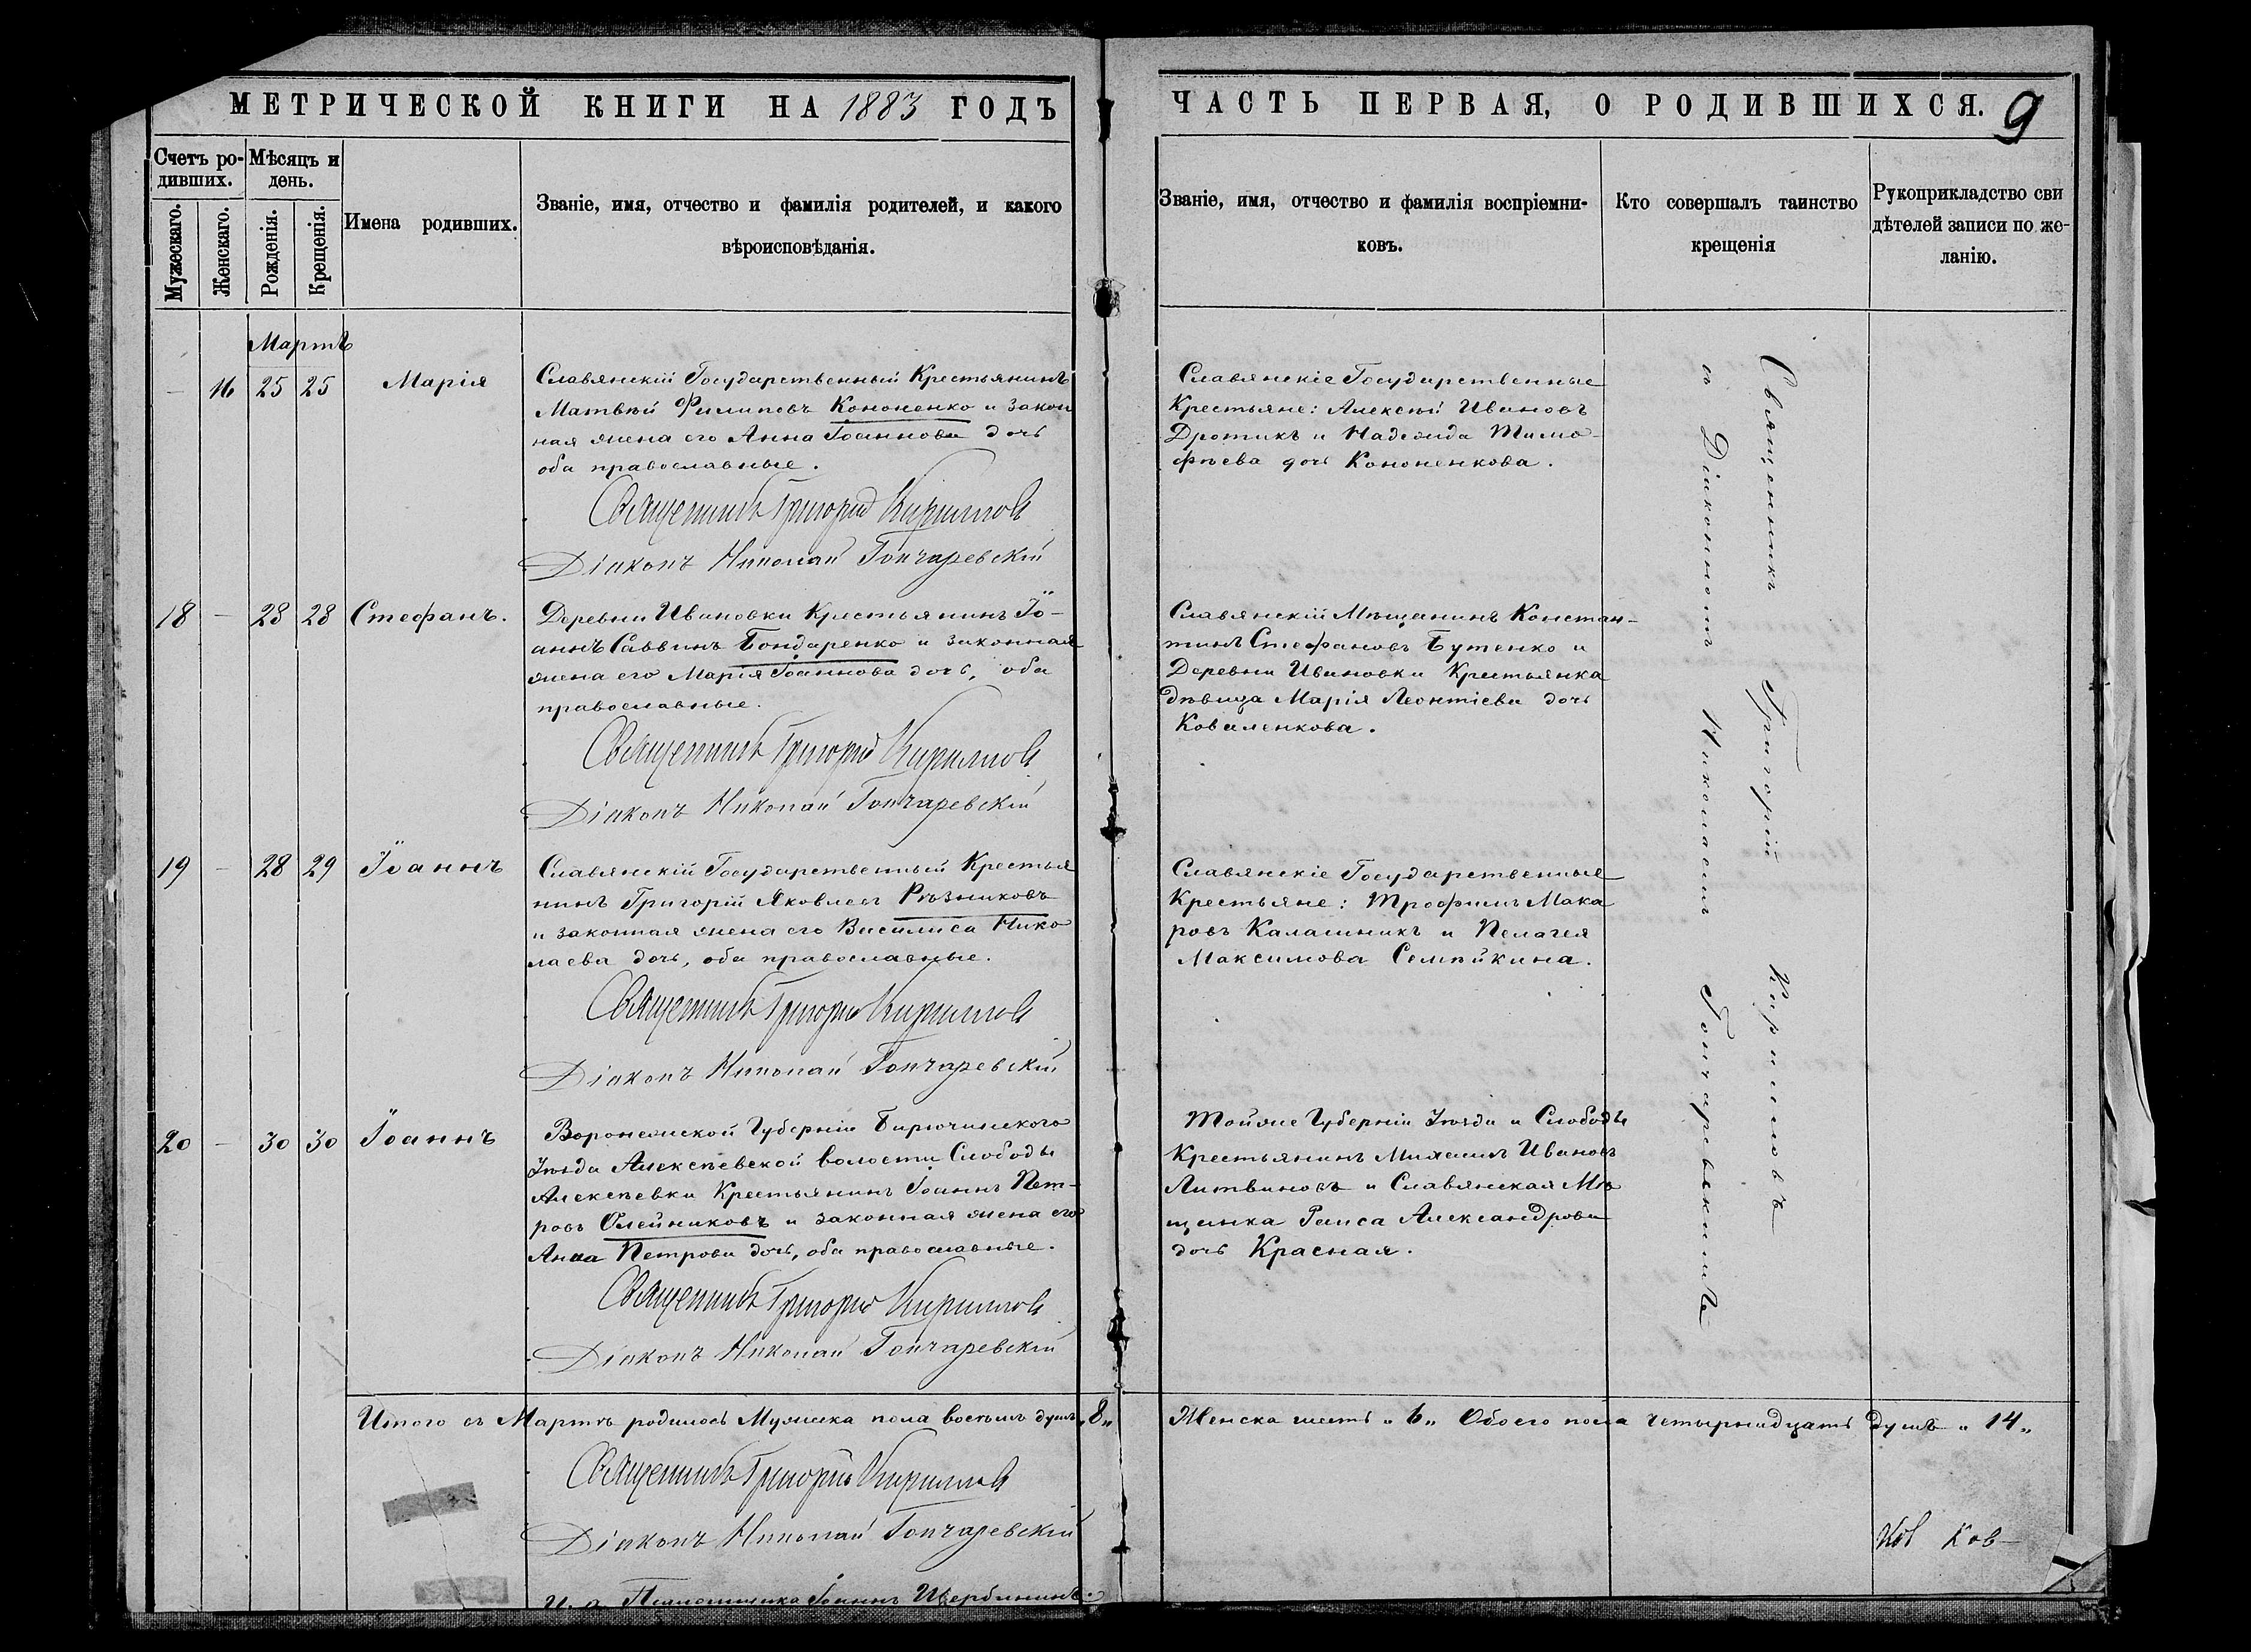 МЕТРИЧЕСКОЙ КНИГИ НА 1883 ГОДЪ
Счетъ ро-
дившихъ.
Мужескаго.
Женскаго.
Мѣсяцъ и
день.
Рожденія.
Крещенія.
Имена родившихъ.
Званіе, имя, отчество и фамилія родителей, и какого
вѣроисповѣданія.
Мартъ
— 16 25 25 Марія
Славянскій Государственный Крестьянинъ
Матвѣй Филиповъ Кононенко и закон
ная жена его Анна Іоаннова дочь
оба православные.
Священникъ Григорій Кирилловъ
Діаконъ Николай Гончаревскій
18 — 28 28 Стефанъ.
Деревни Ивановки Крестьянинъ Іо-
аннъ Саввинъ Бондаренко и законная
жена его Марія Іоаннова дочь, оба
православные.
Священникъ Григорій Кирилловъ
Діаконъ Николай Гончаревскій
19 — 28 29 Іоаннъ
Славянскій Государственный Крестья
нинъ Григорій Яковлевъ Рѣзниковъ
и законная жена его Василиса Нико
лаева дочь, оба православные.
Священникъ Григорій Кирилловъ
Діаконъ Николай Гончаревскій
20 — 30 30 Іоаннъ
Воронежской Губерніи Бирючинского
Уѣзда Алексѣевской волости Слободы
Алексѣевки Крестьянинъ Іоаннъ Пет-
ровъ Олейниковъ и законная жена его
Анна Петрова дочь, оба православные.
Священникъ Григорій Кирилловъ
Діаконъ Николай Гончаревскій
Итого въ Мартѣ родилось Мужеска пола восемь душъ „8„
Священникъ Григорій Кирилловъ
Діаконъ Николай Гончаревскій
И. д. Псаломщика Іоаннъ Щербининъ.
ЧАСТЬ ПЕРВАЯ, О РОДИВШИХСЯ. 9
Званіе, имя, отчество и фамилія воспріемни-
ковъ.
Кто совершалъ таинство
крещенія
Рукоприкладство сви
дѣтелей записи по же-
ланію.
Славянскіе Государственные
Крестьяне: Алексѣй Ивановъ
Дротикъ и Надежда Тимо-
фѣева дочь Кононенкова.
Славянскій Мѣщанинъ Констан-
тинъ Стефановъ Бутенко и
Деревни Ивановки Крестьянка
дѣвица Марія Леонтіева дочь
Коваленкова.
Славянскіе Государственные
Крестьяне: Трофимъ Мака
ровъ Калашникъ и Пелагея
Максимова Семѣйкина.
Тойже Губерніи Уѣзда и Слободы
Крестьянинъ Михаилъ Ивановъ
Литвиновъ и Славянская Мѣ
щанка Раиса Александрова
дочь Красная.
Священникъ Григорій Кирилловъ
съ Діакономъ Николаемъ Гончаревскимъ
Женска шесть „6„ Обоего пола четырнадцать душъ „14„